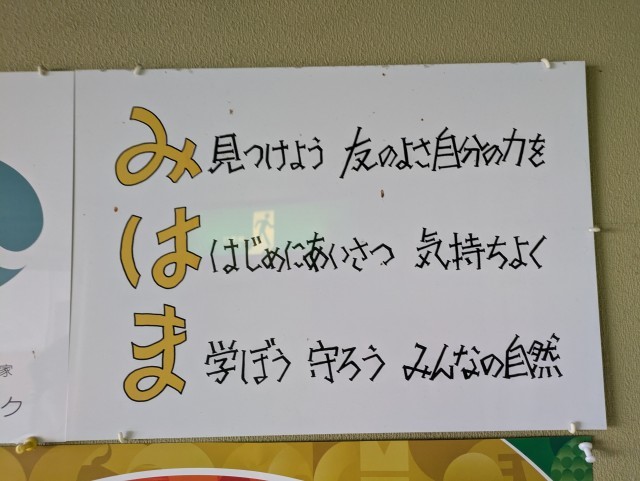 み 見つけよう 友のよさ自分の力を
は はじめにあいさつ 気持ちよく
ま 学ぼう 守ろう みんなの自然
家
ク